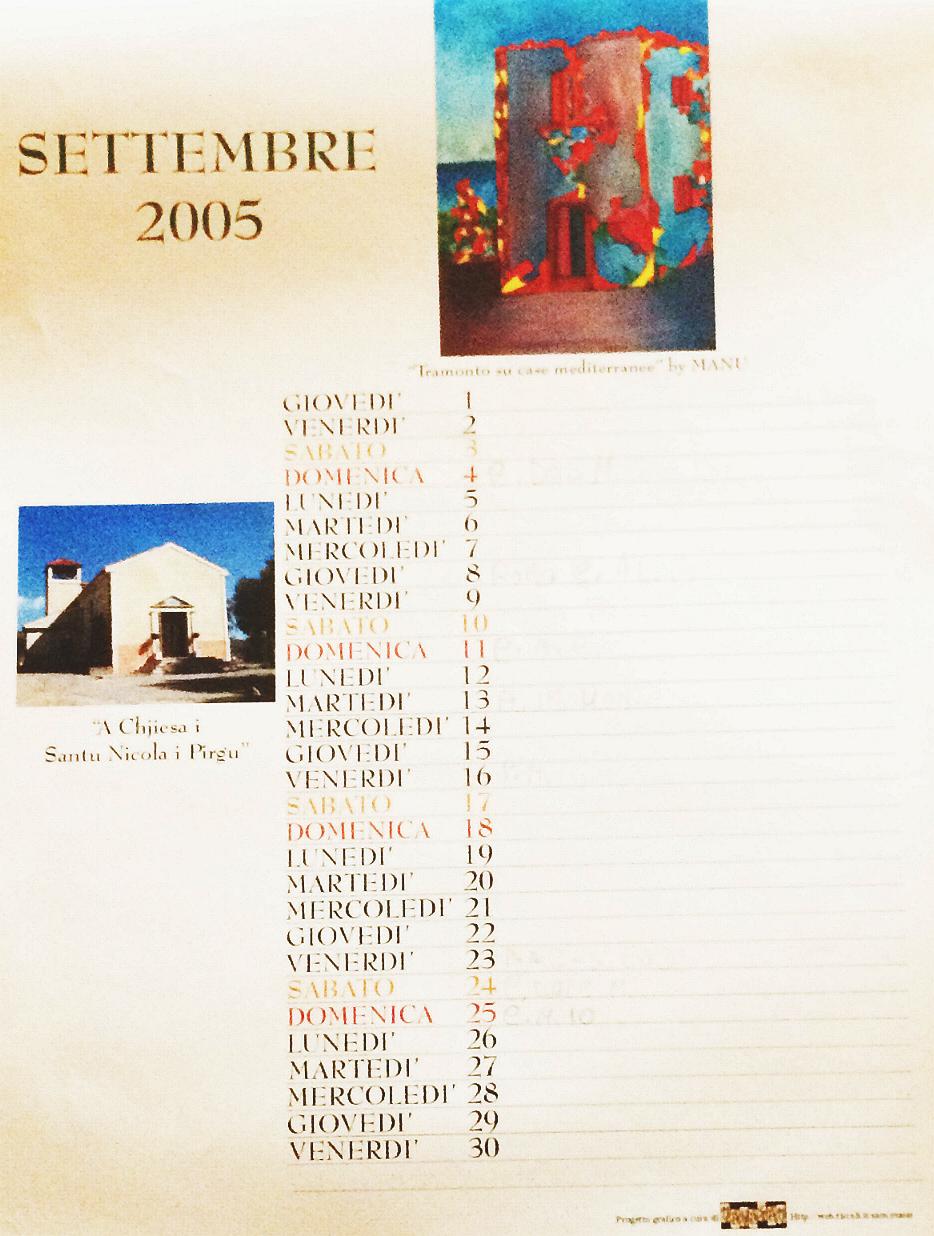 SETTEMBRE
2005
"Tramonto su case mediterranee" by MANU
GIOVEDI' 1
VENERDI' 2
SABATO 3
DOMENICA 4
LUNEDI' 5
MARTEDI' 6
MERCOLEDI' 7
GIOVEDI' 8
VENERDI' 9
SABATO 10
DOMENICA 11
LUNEDI' 12
MARTEDI' 13
MERCOLEDI' 14
GIOVEDI' 15
VENERDI' 16
SABATO 17
DOMENICA 18
LUNEDI' 19
MARTEDI' 20
MERCOLEDI' 21
GIOVEDI' 22
VENERDI' 23
SABATO 24
DOMENICA 25
LUNEDI' 26
MARTEDI' 27
MERCOLEDI' 28
GIOVEDI' 29
VENERDI' 30
"A Chjiesa i
Santu Nicola i Pirgu"
Progetto grafico a cura di